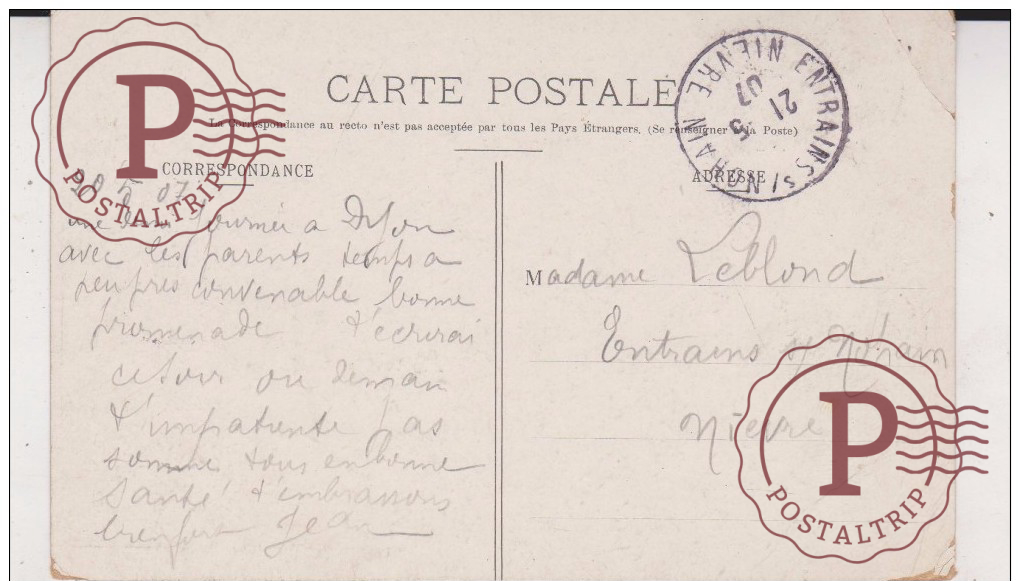 CARTE POSTALE
La Correspondance au recto n'est pas acceptée par tous les Pays Étrangers. (Se renseigner à la Poste)
CORRESPONDANCE
20 5 07
une journée a Dijon
avec les parents temps a
peu pres convenable bonne
promenade t'écrirai
ce soir ou demain
t'impatiente pas
somme tous en bonne
santé t'embrassons
bien fort Jean
ADRESSE
Madame Leblond
Entrains s/ Nohain
Nièvre
ENTRAINS S/ NOHAIN NIEVRE
21 5 07
P
POSTALTRIP
P
POSTALTRIP